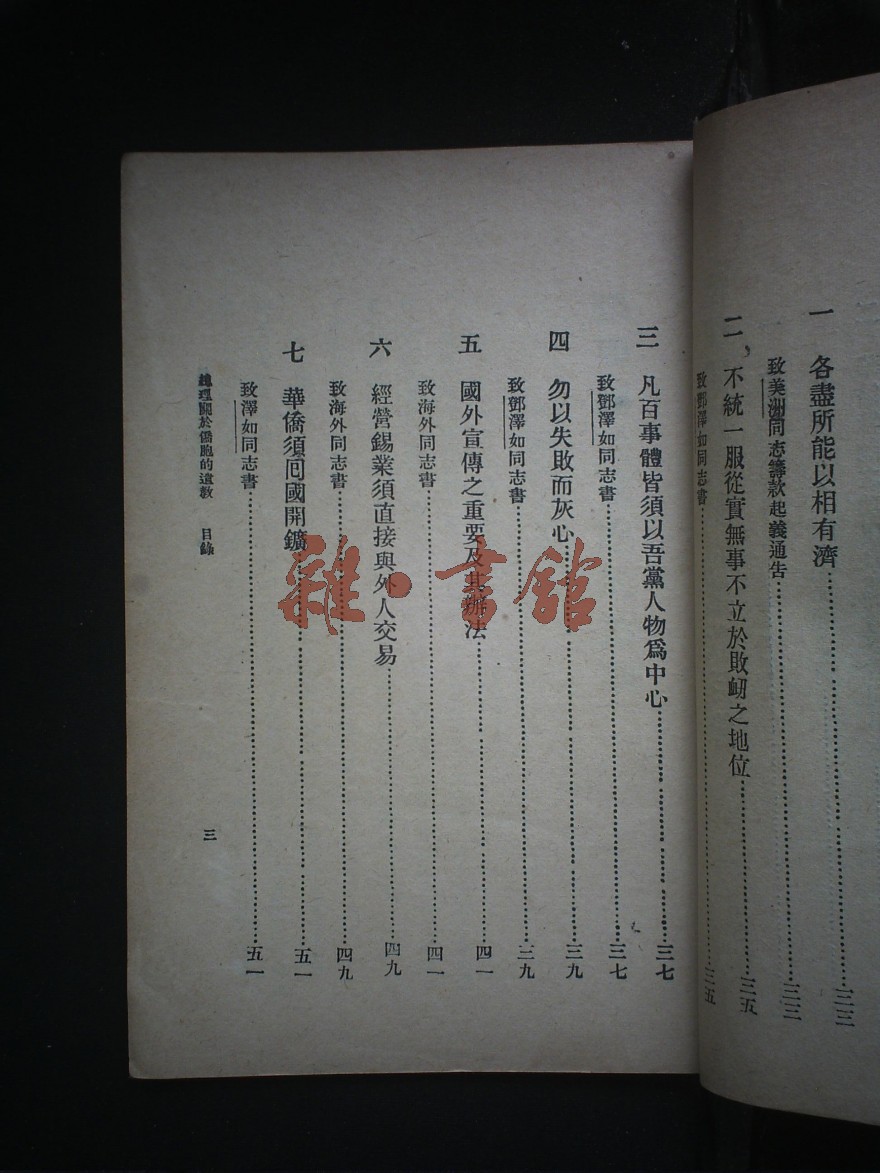 一 各盡所能以相有濟……三三
致美洲同志籌款起義通告……三三
二、不統一服從實無事不立於敗衂之地位……三五
致鄧澤如同志書……三五
三 凡百事體皆須以吾黨人物爲中心……三七
致鄧澤如同志書……三七
四 勿以失敗而灰心……三九
致鄧澤如同志書……三九
五 國外宣傳之重要及其辦法……四一
致海外同志書……四一
六 經營錫業須直接與外人交易……四九
致海外同志書……四九
七 華僑須囘國開鑛……五一
致澤如同志書……五一
總理關於僑胞的遺敎 目錄
三
雜·書館